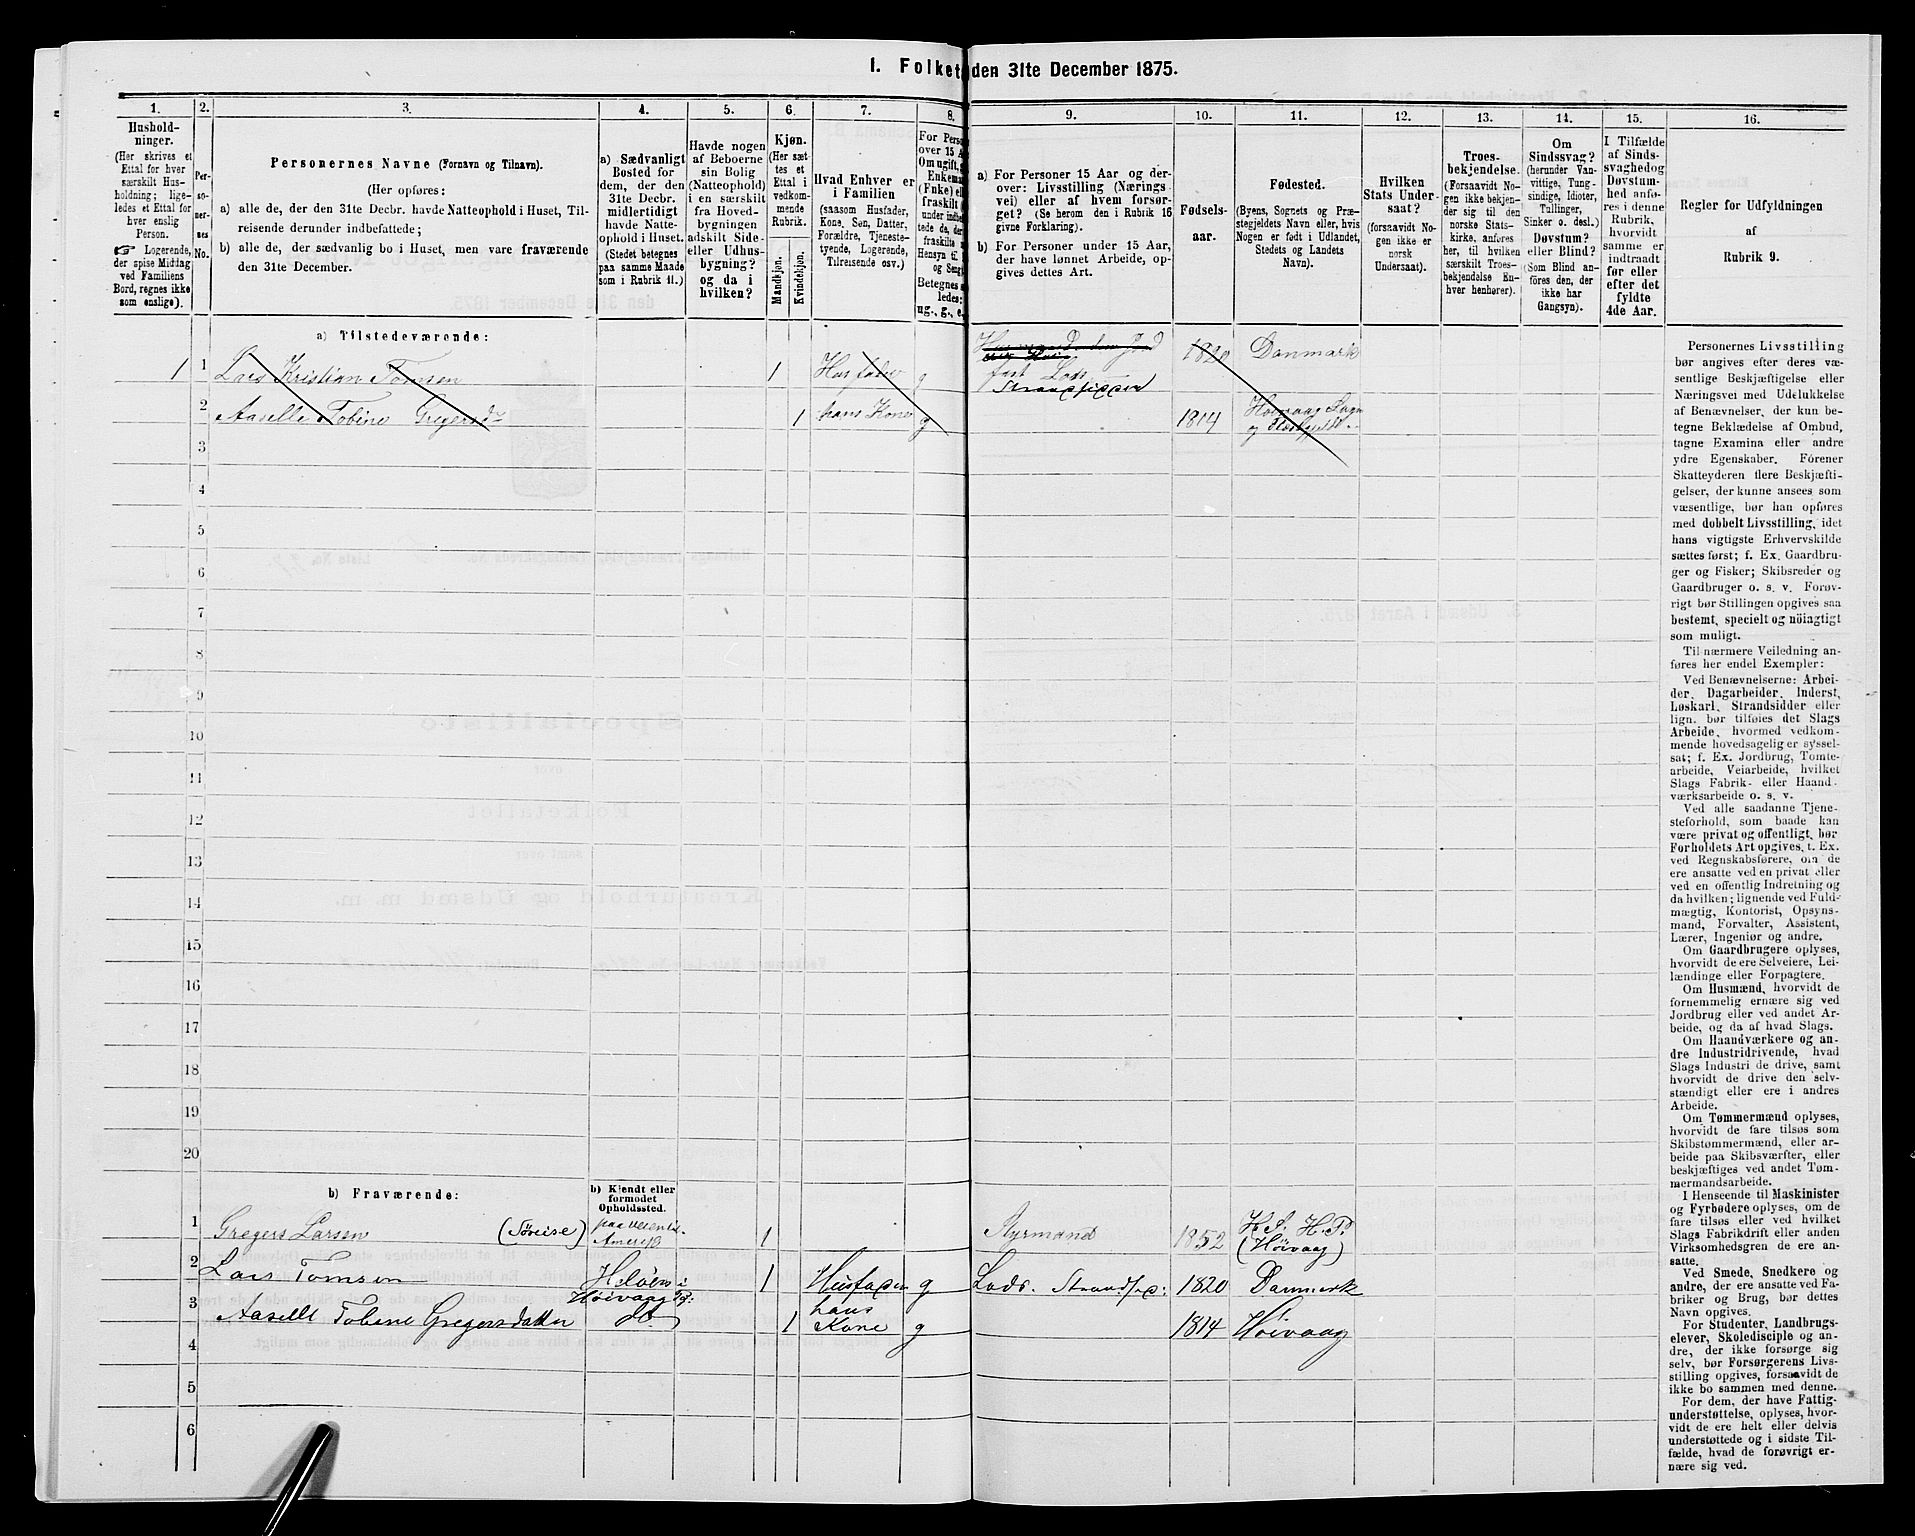 1. Folket den 31te December 1875.
1.
2.
3.
4.
5.
6.
7.
8.
9.
10.
11.
12.
13.
14.
15.
16.
Hushold-
ninger.
(Her skrives et
Ettal for hver
særskilt Hus-
holdning; lige-
ledes et Ettal for
hver enslig
Person.
☞ Logerende,
der spise Middag
ved Familiens
Bord, regnes ikke
som enslige).
Per-
so-
ner-
nes
No.
Personernes Navne (Fornavn og Tilnavn).
(Her opføres:
a) alle de, der den 31te Decbr. havde Natteophold i Huset, Til-
reisende derunder indbefattede;
b) alle de, der sædvanlig bo i Huset, men vare fraværende
den 31te December.
a) Sædvanligt
Bosted for
dem, der den
31te Decbr.
midlertidigt
havde Natte-
ophold i Huset.
(Stedet betegnes
paa samme Maade
som i Rubrik 11.)
Havde nogen
af Beboerne
sin Bolig
(Natteophold)
i en særskilt
fra Hoved-
bygningen
adskilt Side-
eller Udhus-
bygning?
og da i
hvilken?
Kjøn.
(Her sæt-
tes et
Ettal i
vedkom-
mende
Rubrik.
Mandkjøn.
Kvindekjøn.
Hvad Enhver er
i Familien
(saasom Husfader,
Kone, Søn, Datter,
Forældre, Tjeneste-
tyende, Logerende,
Tilreisende osv.)
For Perso
over 15 A
Om ugift, g
Enkema
(Fnke) ell
fraskilt
under indbe
tede de, der
fraskilte
Hensyn til
og Seng
Betegnes
ledes:
ug., g., e.
a) For Personer 15 Aar og der-
over: Livsstilling (Nærings-
vei) eller af hvem forsør-
get? (Se herom den i Rubrik 16
givne Forklaring).
b) For Personer under 15 Aar,
der have lønnet Arbeide, op-
gives dettes Art.
Fødsels-
aar.
Fødested.
(Byens, Sognets og Præ-
stegjeldets Navn eller, hvis
Nogen er født i Udlandet,
Stedets og Landets
Navn).
Hvilken
Stats Under-
saat?
(forsaavidt No-
gen ikke er
norsk
Undersaat).
Troes-
bekjendelse.
(Forsaavidt No-
gen ikke bekjen-
der sig til den
norske Stats-
kirke, anføres
her, til hvilken
særskilt Troes-
bekjendelse En-
hver henhører).
Om
Sindssvag?
(herunder Van-
vittige, Tung-
sindige, Idioter,
Tullinger,
Sinker o. desl.)
Døvstum?
eller Blind?
(Som Blind an-
føres den, der
ikke har
Gangsyn).
I Tilfælde
af Sinds-
svaghed og
Døvstum-
hed anfø-
res i denne
Rubrik,
hvorvidt
samme er
indtraadt
før eller
efter det
fyldte
4de Aar.
Regler for Udfyldningen
af
Rubrik 9.
a) Tilstedeværende:
1 1 Lars Kristian Tomsen 1 Husfader g
fast Lods
Strandsidder
1820 Danmark
2 Aaselle Tobine Gregersdr 1 hans Kone g 1814 Høivaag Sogn
og Præstegjeld
3
4
5
6
7
8
9
10
11
12
13
14
15
16
17
18
19
20
b) Fraværende:
b) Kjendt eller
formodet
Opholdssted.
1 Gregers Larsen (Søreise) 1 Styrmand 1852 H. S. H. P.
(Høivaag)
2 Lars Tomsen 1 Husfader g Lods. Strands: 1820 Danmark
Høivaag
3 Aaselle Tobine Gregersdatter 1 hans
Kone g 1814 Høivaag
4
5
6
Personernes Livsstilling
bør angives efter deres væ-
sentlige Beskjæftigelse eller
Næringsvei med Udelukkelse
af Benævnelser, der kun be-
tegne Beklædelse af Ombud,
tagne Examina eller andre
ydre Egenskaber. Forener
Skatteyderen flere Beskjæfti-
gelser, der kunne ansees som
væsentlige, bør han opføres
med dobbelt Livsstilling, idet
hans vigtigste Erhvervskilde
sættes først; f. Ex. Gaardbru-
ger og Fisker; Skibsreder og
Gaardbruger o. s. v. Forøv-
rigt bør Stillingen opgives saa
bestemt, specielt og nöiagtigt
som muligt.
Til nærmere Veiledning an-
føres her endel Exempler:
Ved Benævnelserne: Arbei-
der, Dagarbeider, Inderst,
Løskarl, Strandsidder eller
lign. bør tilføies det Slags
Arbeide, hvormed vedkom-
mende hovedsagelig er syssel-
sat; f. Ex. Jordbrug, Tomte-
arbeide, Veiarbeide, hvilket
Slags Fabrik- eller Haand-
værksarbeide o. s. v.
Ved alle saadanne Tjene-
steforhold, som baade kan
være privat og offentligt, bør
Forholdets Art opgives, t. Ex.
ved Regnskabsførere, om de
ere ansatte ved en privat eller
ved en offentlig Indretning og
da hvilken; lignende ved Fuld-
mægtig, Kontorist, Opsyns-
mand, Forvalter, Assistent,
Lærer, Ingeniør og andre.
Om Gaardbrugere oplyses,
hvorvidt de ere Selveiere, Lei-
lændinge eller Forpagtere.
Om Husmænd, hvorvidt de
fornemmelig ernære sig ved
Jordbrug eller ved andet Ar-
beide, og da af hvad Slags.
Om Haandværkere og an-
dre Industridrivende, hvad
Slags Industri de drive, samt
hvorvidt de drive den selv-
stændigt eller ere i andres
Arbeide.
Om Tømmermænd oplyses,
hvorvidt de fare tilsøs som
Skibstømmermænd, eller ar-
beide paa Skibsværfter, eller
beskjæftiges ved andet Tøm-
mermandsarbeide.
I Henseende til Maskinister
og Fyrbødere oplyses, om de
fare tilsøs eller ved hvilket
Slags Fabrikdrift eller anden
Virksomhedsgren de ere an-
satte.
Ved Smede, Snedkere og
andre, der ere ansatte ved Fa-
briker og Brug, bør dettes
Navn opgives.
For Studenter, Landbrugs-
elever, Skoledisciple og an-
dre, der ikke forsørge sig
selv, bør Forsørgerens Livs-
stilling opgives, forsaavidt de
ikke bo sammen med denne.
For dem, der have Fattig-
understøttelse, oplyses, hvor-
vidt de ere helt eller delvis
understøttede og i sidste Til-
fælde, hvad de forøvrigt er-
nære sig ved.